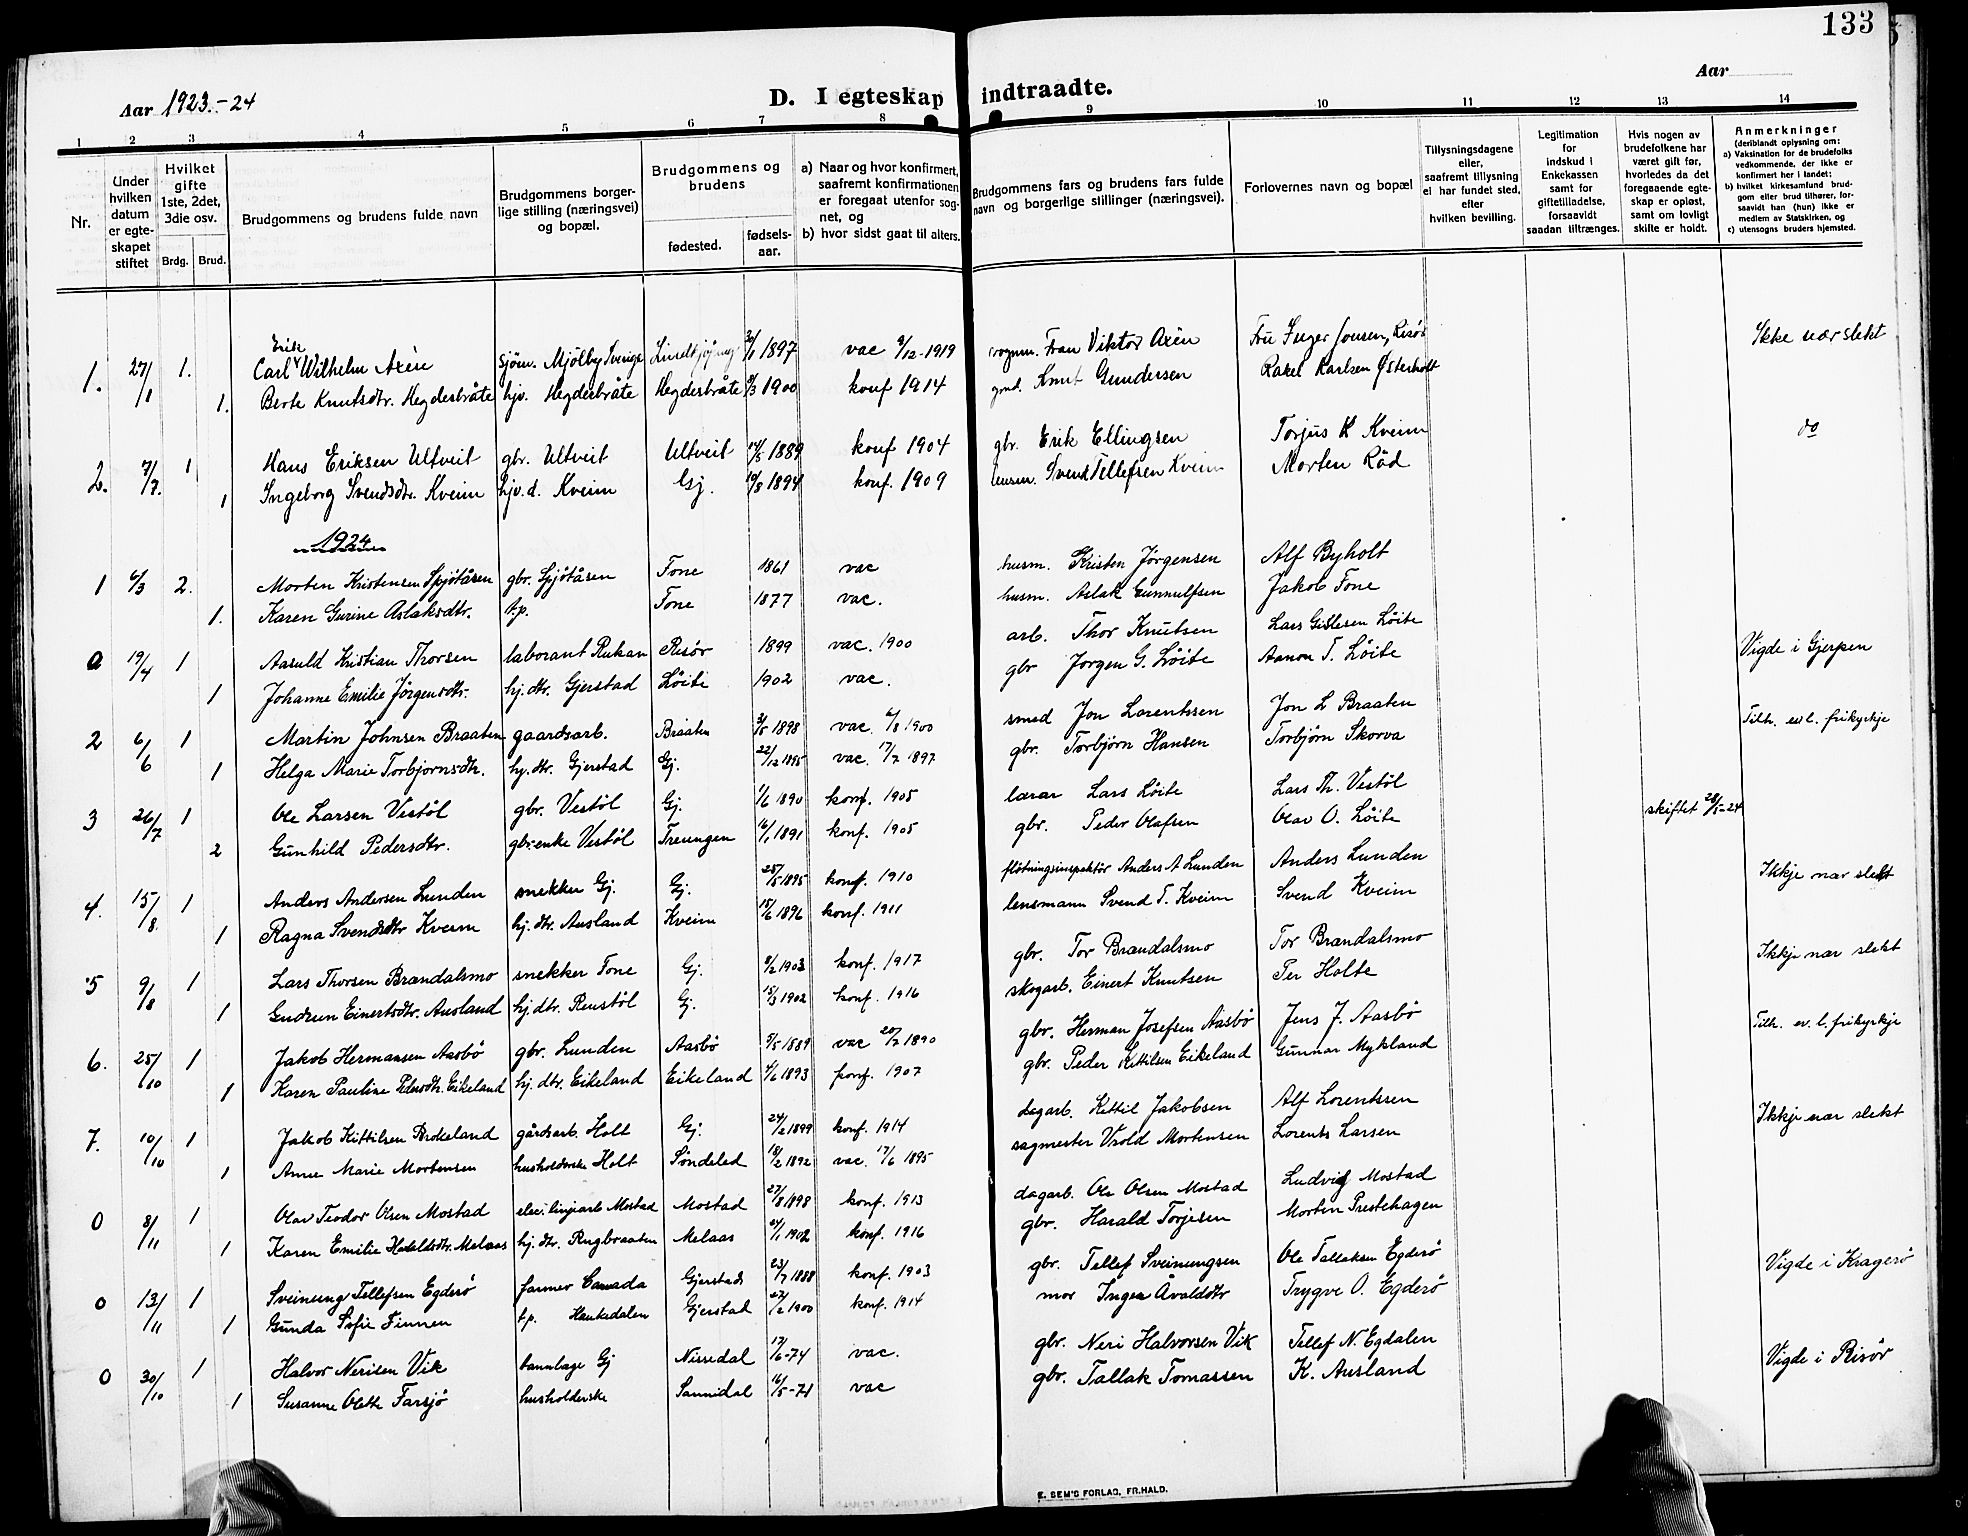 133
Aar 1923.-24
D. I egteskap indtraadte.
Aar
1 2 3 4 5 6 7 8 9 10 11 12 13 14
Nr.
Under hvilken datum er egteskapet stiftet
Hvilket gifte 1ste, 2det, 3die osv.
Brdg. Brud.
Brudgommens og brudens fulde navn
Brudgommens borgerlige stilling (næringsvei) og bopæl.
Brudgommens og brudens
fødested. fødselsaar.
a) Naar og hvor konfirmert, saafremt konfirmationen er foregaat utenfor sognet, og
b) hvor sidst gaat til alters.
Brudgommens fars og brudens fars fulde navn og borgerlige stillinger (næringsvei).
Forlovernes navn og bopæl
Tillysningsdagene eller, saafremt tillysning ei har fundet sted, efter hvilken bevilling.
Legitimation for indskud i Enkekassen samt for giftetilladelse, forsaavidt saadan tiltrænges.
Hvis nogen av brudefolkene har været gift før, hvorledes da det foregaaende egteskap er opløst, samt om lovligt skifte er holdt.
Anmerkninger (deriblandt oplysning om:
a) Vaksination for de brudefolks vedkommende, der ikke er konfirmert her i landet;
b) hvilket kirkesamfund brudgom eller brud tilhører, forsaavidt han (hun) ikke er medlem av Statskirken, og
c) utensogns bruders hjemsted.
1. 27/1 1. Carl Erik Wilhelm Axén sjöm. Mjölby Sverige 2/1 1897 vac 9/12-1919 Fran Viktor Axén Fru Inger Jonsen, Risör Ikke nær slekt
1. Berte Knutsdtr. Hegdesbråte hjv. Hegdesbråte Hegdesbråte 9/3 1900 konf 1914 gmd. Knut Gundersen Rakel Karlsen Østerholt
2. 7/7. 1 Hans Eriksen Ultveit gbr. Ultveit Ultveit 14/5 1889 konf 1904 gbr. Erik Ellingsen Torjus K Kveim do
1 Ingeborg Svendsdtr. Kveim hjv.d. Kveim Gj. 19/8 1894 konf. 1909 lensm. Svend Tellefsen Kveim Morten Råd
1924
1 6/3 2. Morten Kristensen Spjötåsen gbr. Spjötåsen Tone 1861 vac husm. Kristen Jörgensen Alf Byholt
1. Karen Gurine Aslaksdtr. t.p. Tone 1877 vac. husm. Aslak Gunnulfsen Jakob Tone
0 19/4 1 Aasuld Kristian Thorsen laborant Rukan Risør 1899 vac. 1900 arb. Thor Knutsen Lars Gislesen Löite Vigde i Gjerpen
1 Johanne Emilie Jörgensdtr. hj.dtr. Gjerstad Löite 1902 vac. gbr Jorgen G. Löite Aanon T. Löite
2 6/6 1 Martin Johnsen Braaten gaardsarb. Braaten 3/5 1898 vac. 6/8 1900 smed Jon Lorentssen Jon L Braaten Tilh. ev. l. frikyrkje
1 Helga Marie Torbjornsdtr. hj.dtr. Gjerstad Gj. 22/12 1895 vac. 17/7 1897 gbr. Torbjørn Hansen Torbjørn Skorva
3 26/7 1 Ole Larsen Vestöl gbr. Vestöl Gj. 1/6 1890 konf. 1905 lærar Lars Löite Lars Th. Vestöl skiftet 28/5-24
2 Gunhild Pedersdtr. gbr.enke Vestöl Treungen 16/1 1891 konf. 1905 gbr. Peder Olafsen Olav O. Löite
4. 15/8. 1 Anders Andersen Lunden snekker Gj. Gj. 25/5 1895 konf. 1910 flötningsinspektör Anders A Lunden Anders Lunden Ikkje nær slekt
1 Ragna Svendsdtr Kveim hj.dtr. Ausland Kveim 15/6 1896 konf. 1911 lensmann Svend T. Kveim Svend Kveim
5 9/8 1 Lars Thorsen Brandalsmo snekker Tone Gj. 9/2 1903 konf. 1917 gbr. Tor Brandalsmo Tor Brandalsmo Ikkje nær slekt
1 Gudrun Einertsdtr. Ausland hj.dtr. Renstöl Gj. 15/3 1902 konf. 1916 skogarb. Einert Knutsen Ter Holte
6. 25/10 1 Jakob Hermansen Aasbö gbr. Lunden Aasbö 9/5 1889 vac 20/7 1890 gbr. Herman Josefsen Aasbö Jens J. Aasbö Tilh. ev. l. frikyrkje
1 Karen Pauline Pedersdtr. Eikeland hj. dtr. Eikeland Eikeland 4/6 1893 konf. 1907 gbr. Peder Kittilsen Eikeland Gunnar Mykland
7. 10/10 1 Jakob Kittilsen Brokeland gårdsarb. Holt Gj. 24/2 1899 konf. 1914 dagarb. Kittil Jakobsen Alf Lorentssen Ikkje nær slekt
1 Anne Marie Mortensen husholderske Holt Söndeled 18/2 1892 vac. 17/6 1895 sagmester Vrold Mortensen Lorents Larsen
0 8/11 1 Olav Teodor Olsen Mostad elec. linjearb Mostad Mostad 27/8 1898 konf. 1913 dagarb. Ole Olsen Mostad Ludvig Mostad
1 Karen Emilie Haraldsdtr. Melaas hj. dtr. Rugbraaten Melaas 24/1 1902 konf. 1916 gbr. Harald Torjesen Morten Prestehagen
0 13/11 1 Sveinung Tellefsen Egderö farmer Canada Gjerstad 23/7 1888 konf. 1903 gbr. Tellef Sveinungsen Ole Tallaksen Egderö Vigde i Kragerö
1 Gunda Sofie Finnen t.p. Haukedalen Gjerstad 27/2 1900 konf. 1914 mor Inger Avaldsdtr Trygve O. Egderö
0 30/10 1 Halvor Nerisen Vik tannlæge Gj Nissedal 17/6-74 vac. gbr. Neri Halvorsen Vik Tellef N. Egdalen Vigde i Risör
1 Susanne Olette Farsjö husholderske Sannidal 16/5-71 vac gbr. Tallak Tomassen K. Ausland
E. SEM'S FORLAG, FR.HALD.